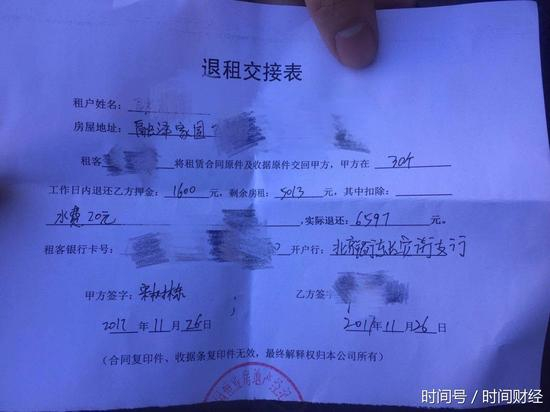 退租交接表
租户姓名：
房屋地址：融泽家园
租客 将租赁合同原件及收据原件交回甲方，甲方在 30个
工作日内退还乙方押金：1600 元，剩余房租：5013 元，其中扣除：
水费20元 ,实际退还：6597 元。
租客银行卡号： 开户行：北京 东长安街支行
甲方签字： 乙方签字
2017年11月26日 2017年11月26日
（合同复印件、收据条复印件无效，最终解释权归本公司所有）
房地产经
时间号／时间财经